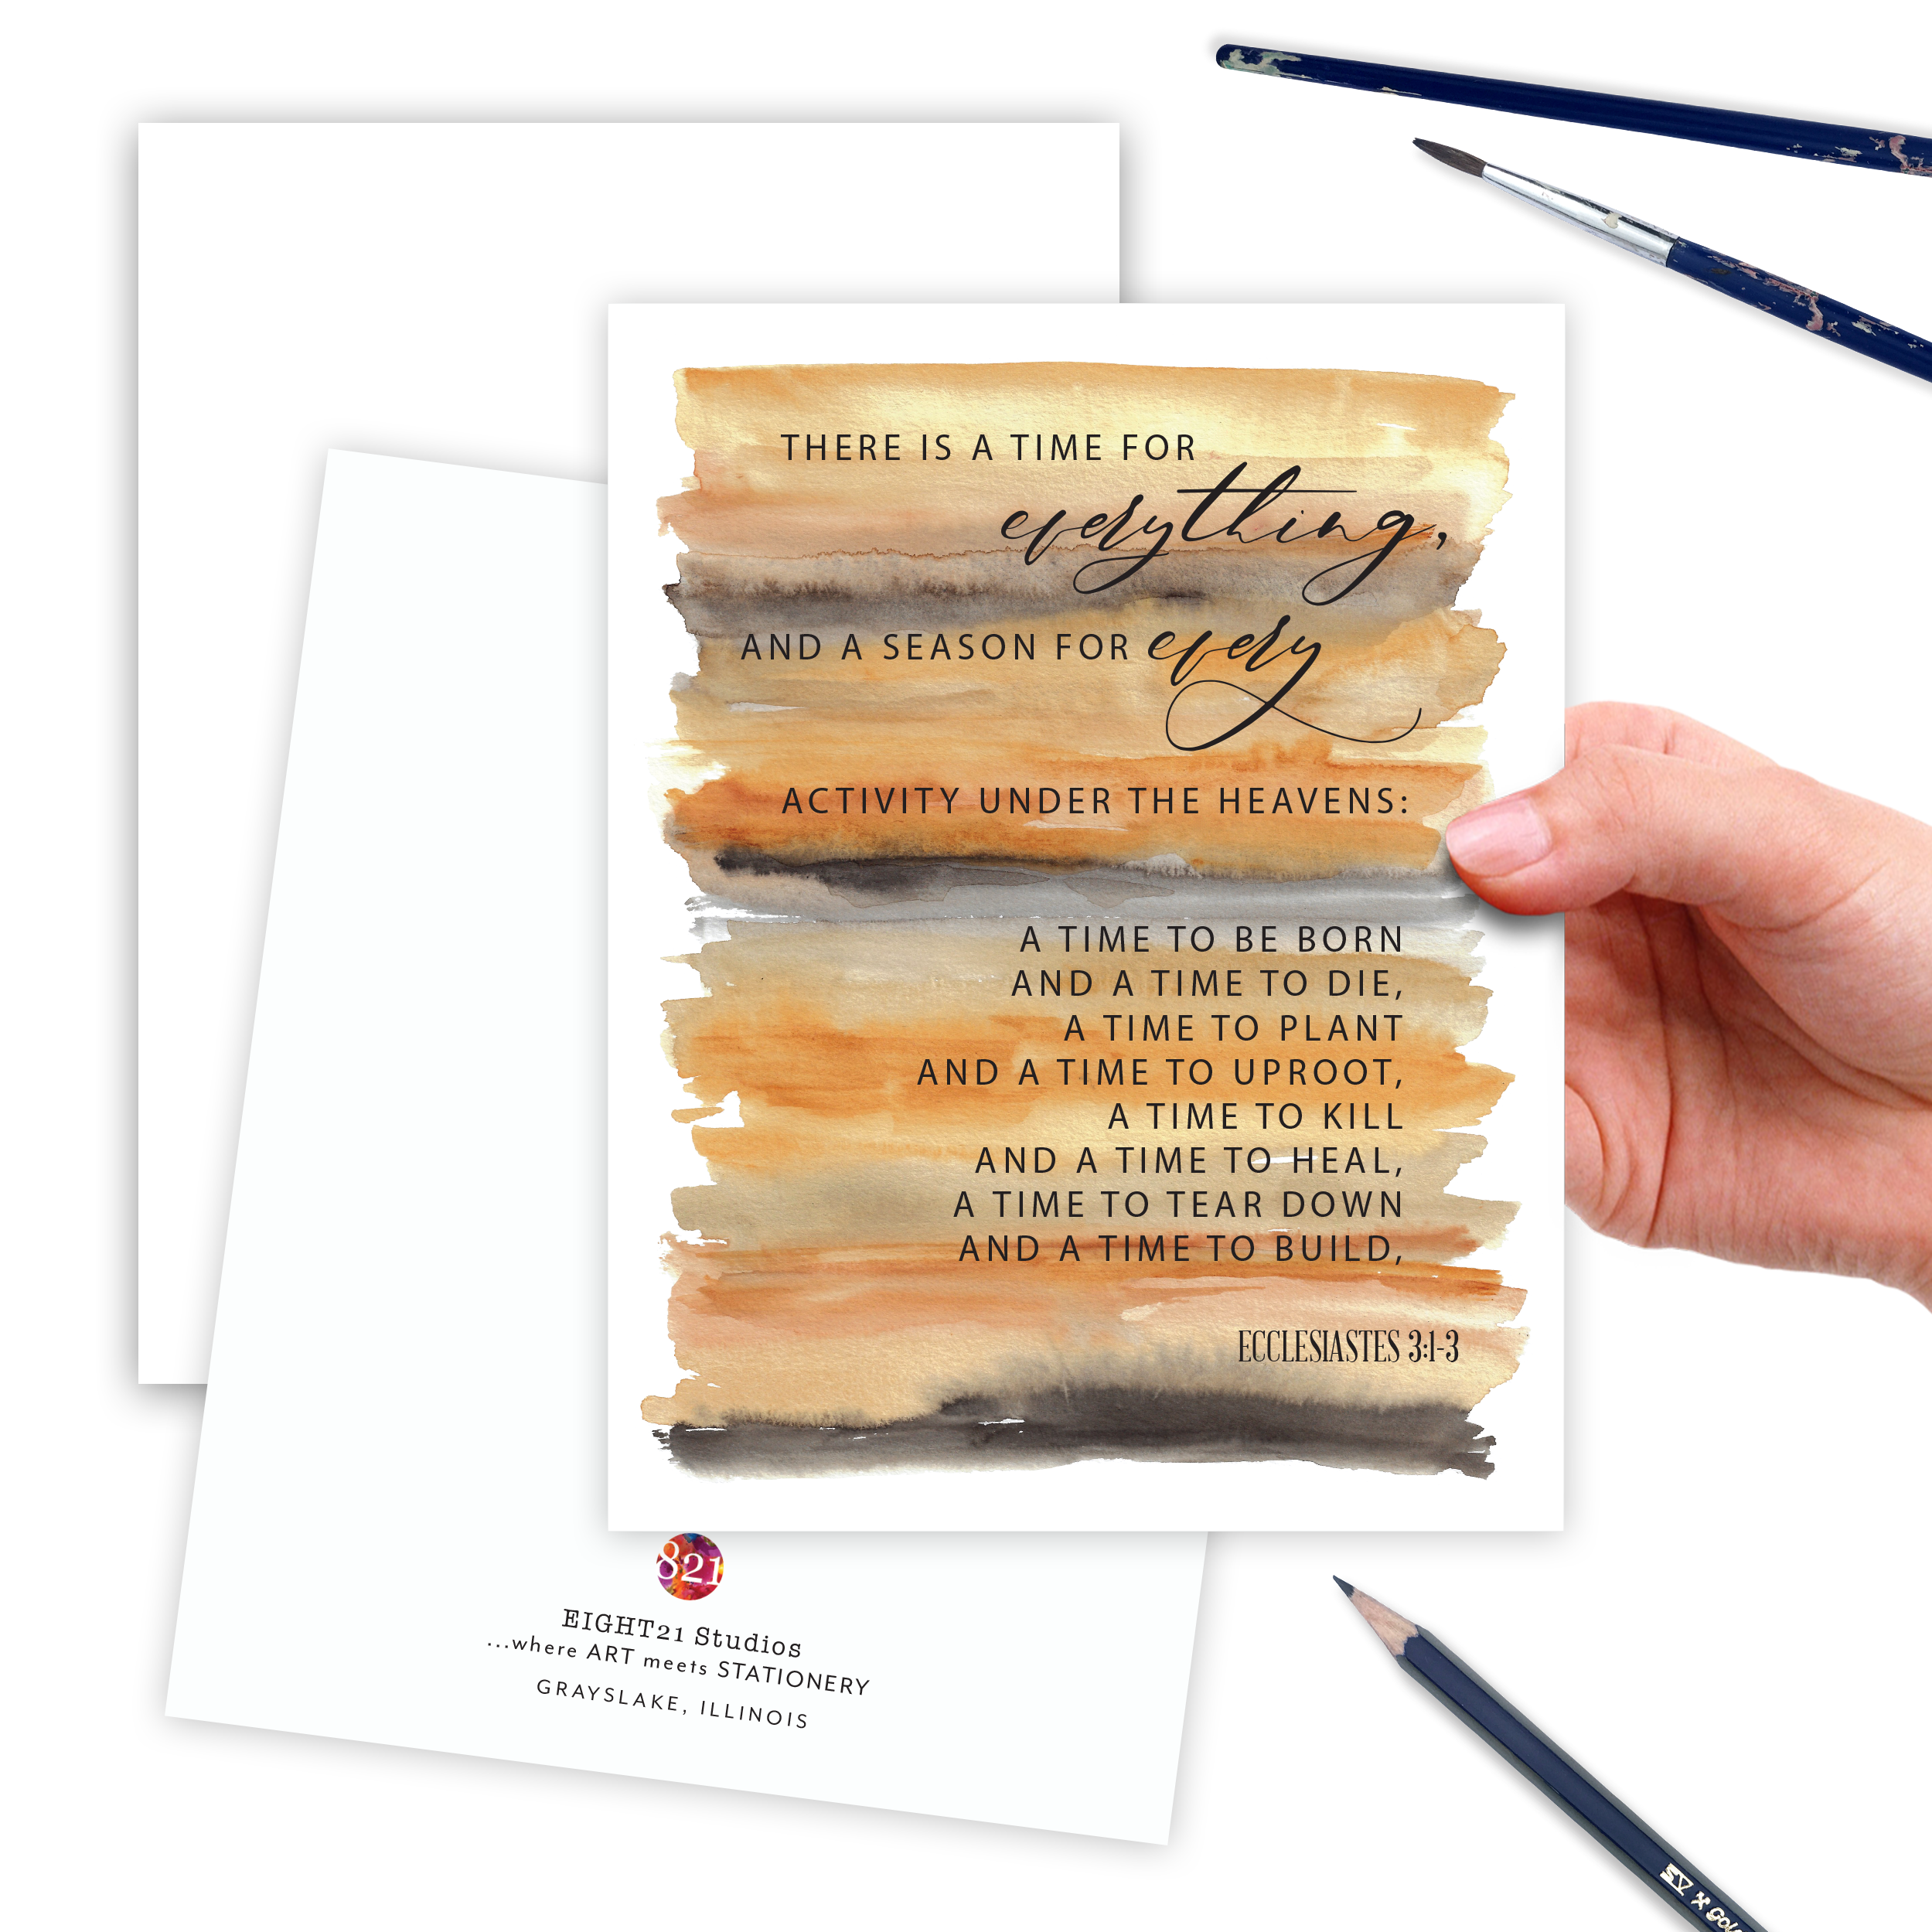 THERE IS A TIME FOR
everything,
AND A SEASON FOR every
ACTIVITY UNDER THE HEAVENS:
A TIME TO BE BORN
AND A TIME TO DIE,
A TIME TO PLANT
AND A TIME TO UPROOT,
A TIME TO KILL
AND A TIME TO HEAL,
A TIME TO TEAR DOWN
AND A TIME TO BUILD,
ECCLESIASTES 3:1-3
821
EIGHT21 Studios
...where ART meets STATIONERY
GRAYSLAKE, ILLINOIS